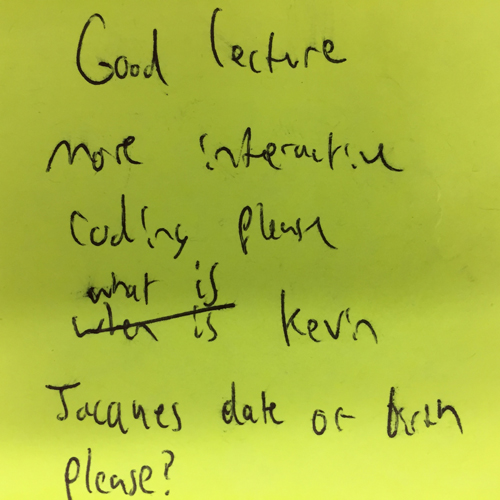 Good lecture
more interactive
coding please
what is
when is Kevin
Jacques date of birth
please?